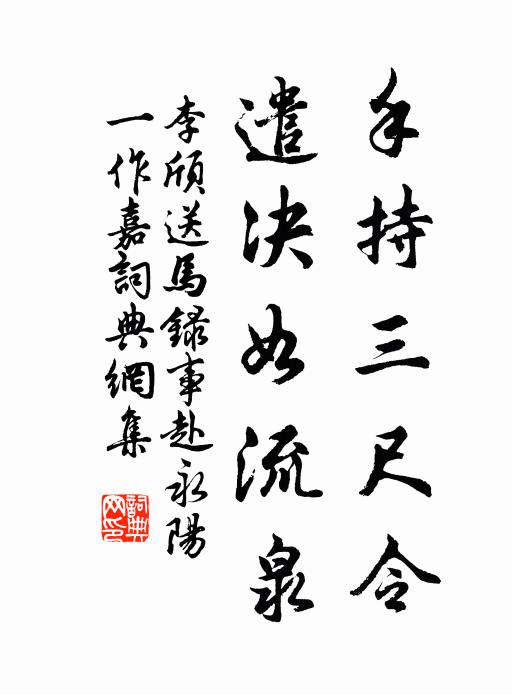 手持三尺令
遣决如流泉
李颀送馬録事赴永陽
一作嘉詞典網集
詞典網印